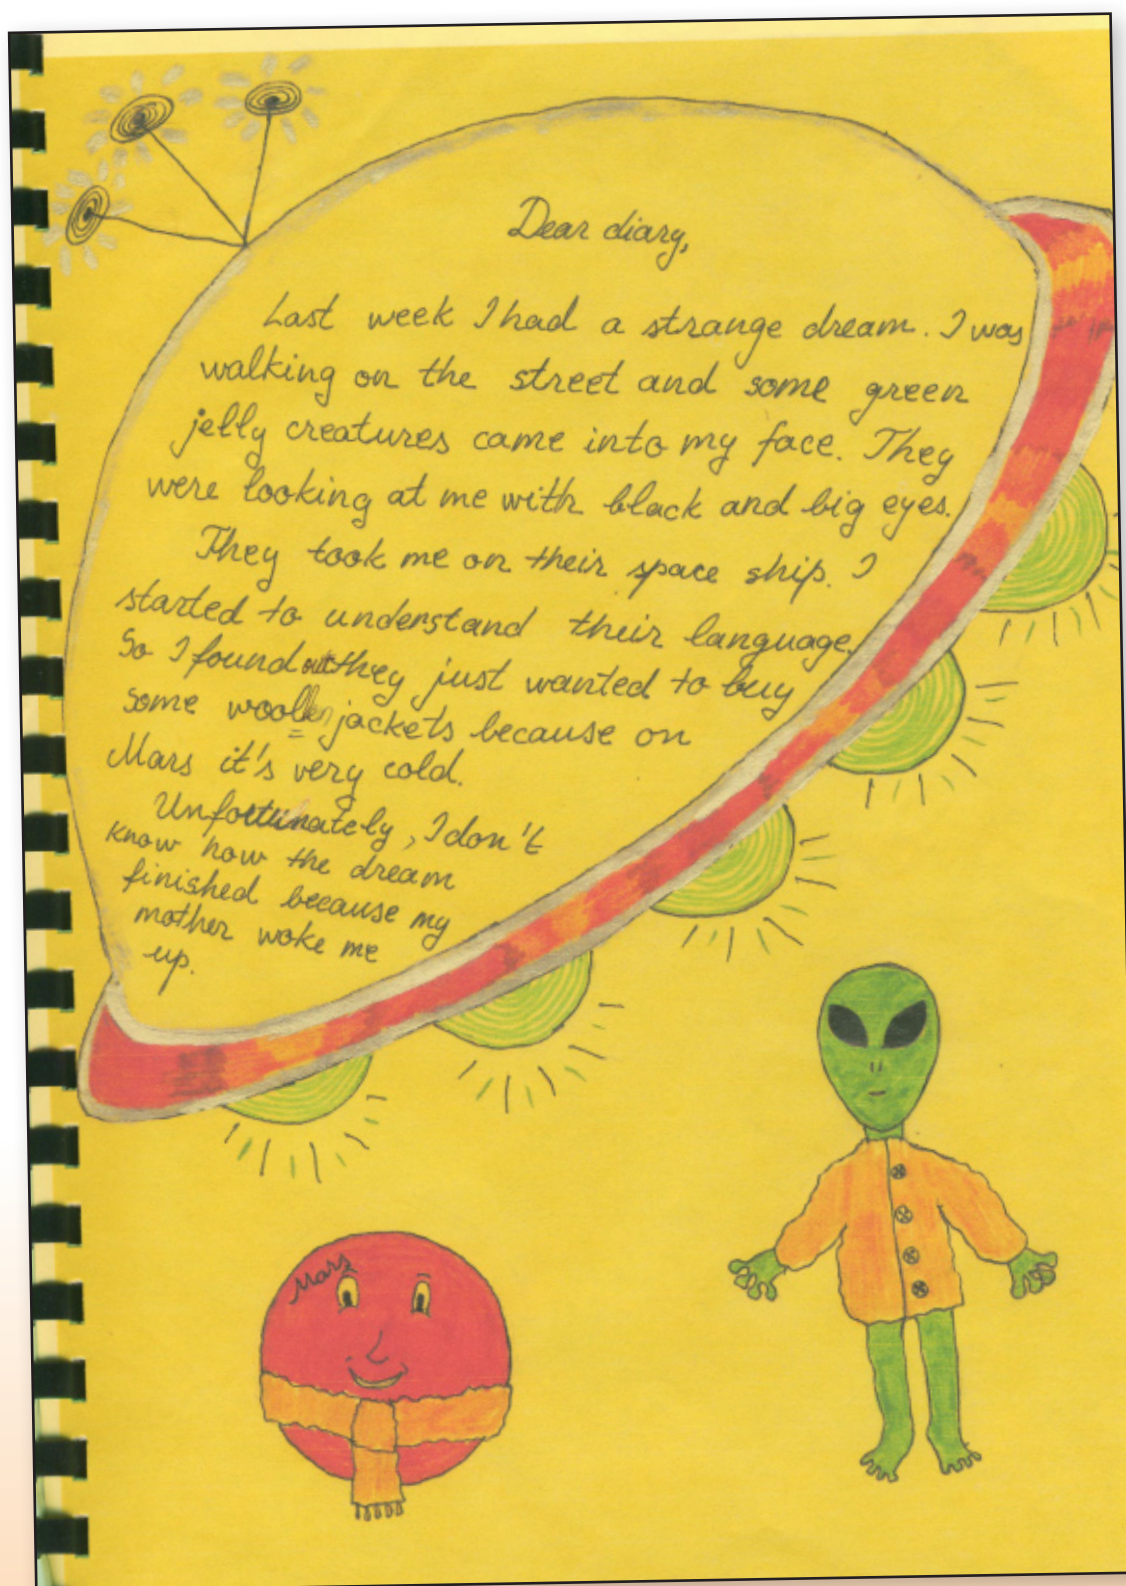 Dear diary,
Last week I had a strange dream. I was
walking on the street and some green
jelly creatures came into my face. They
were looking at me with black and big eyes.
They took me on their space ship. I
started to understand their language.
So I found out they just wanted to buy
some woollen jackets because on
Mars it's very cold.
Unfortunately, I don't
know how the dream
finished because my
mother woke me
up.
Mars